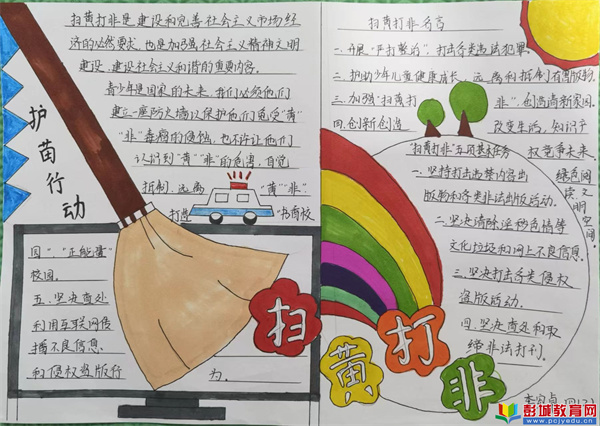 护苗行动
扫黄打非是建设和完善社会主义市场经
济的必然要求，也是加强社会主义精神文明
建设、建设社会主义和谐的重要内容。
青少年是国家的未来，我们必须他们
建立一座防火墙以保护他们免受"黄"
"非"毒瘤的侵蚀，也不许让他们
认识到"黄""非"的危害，自觉
抵制、远离"黄""非"
打造"书香校
园"、"正能量"
校园。
五、坚决查处
利用互联网传
播不良信息
和侵权盗版行
为。
扫黄打非名言
一、开展"严打整治"，打击各类违法犯罪。
二、护助少年儿童健康成长，远离和抵制有害出版物
三、加强"扫黄打非"，创造清新家园。
四、创新创造改变生活，知识产
权竞争未来。
绿色阅读
文明空间。
"扫黄打非"五项基本任务
一、坚持打击各禁内容出
版物和各类非法出版活动。
二、坚决清除淫秽色情等
文化垃圾和网上不良信息。
三、坚决打击各类侵权
盗版活动。
四、坚决查处和取
缔非法打刊。
扫
黄
打
非
四(2)
彭城教育网
www.pcjyedu.cn